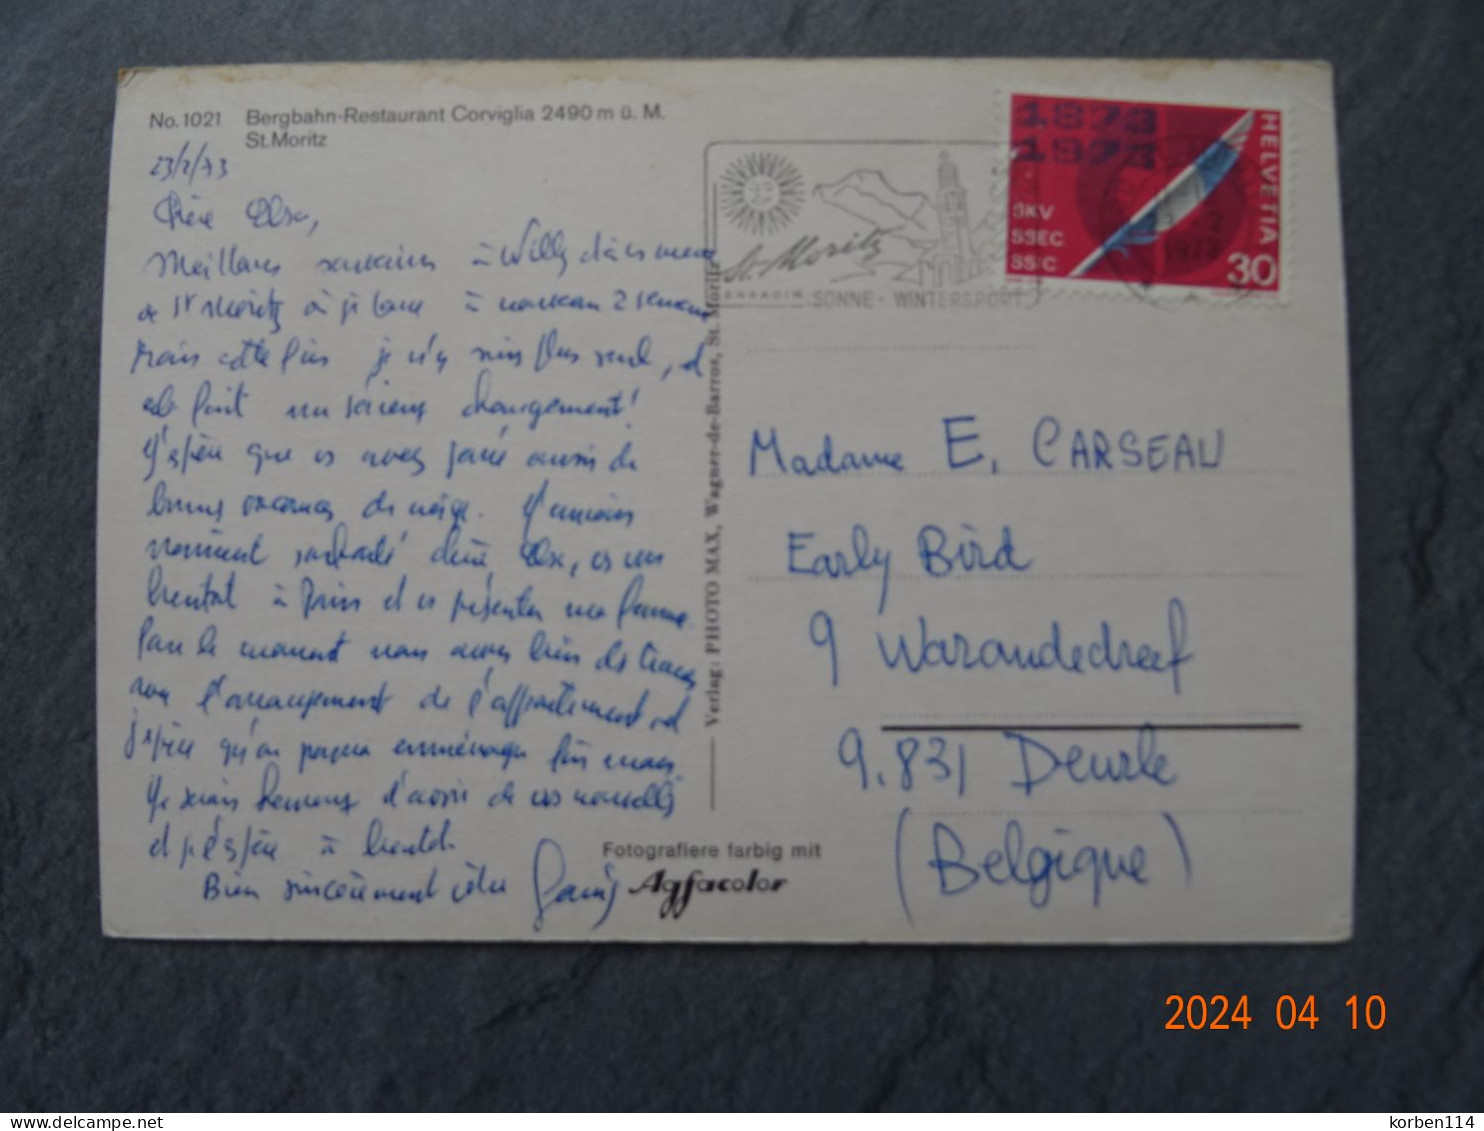 No. 1021 Bergbahn-Restaurant Corviglia 2490 m ü. M.
St. Moritz
23/2/73
Chère Elsa,
Meilleurs souvenirs à Willy
de St Moritz où je passe à nouveau 2 semaines
Mais cette fois je n'y suis plus seul, et
cela fait un sérieux changement!
J'espère que vs avez passé aussi de
bonnes vacances de neige. J'aimerais
vraiment Chère Elsa, vs voir
bientôt à Paris et vs présenter ma femme.
Pour le moment nous avons bien des travaux
pour l'arrangement de l'appartement et
j'espère qu'on pourra emménager fin mars
Je serais heureux d'avoir de vos nouvelles
et j'espère à bientôt.
Bien sincèrement vôtre
1873
1973
SKV
SSEC
SSIC
HELVETIA
30
St. Moritz
ENGADIN SONNE · WINTERSPORT
23. 2
1973
Verlag: PHOTO MAX, Wagner-de-Barros, St. Moritz
Madame E. CARSEAU
Early Bird
9 Warandedreef
9.831 Deurle
(Belgique)
Fotografiere farbig mit
Agfacolor
2024 04 10
delcampe.net
korben114